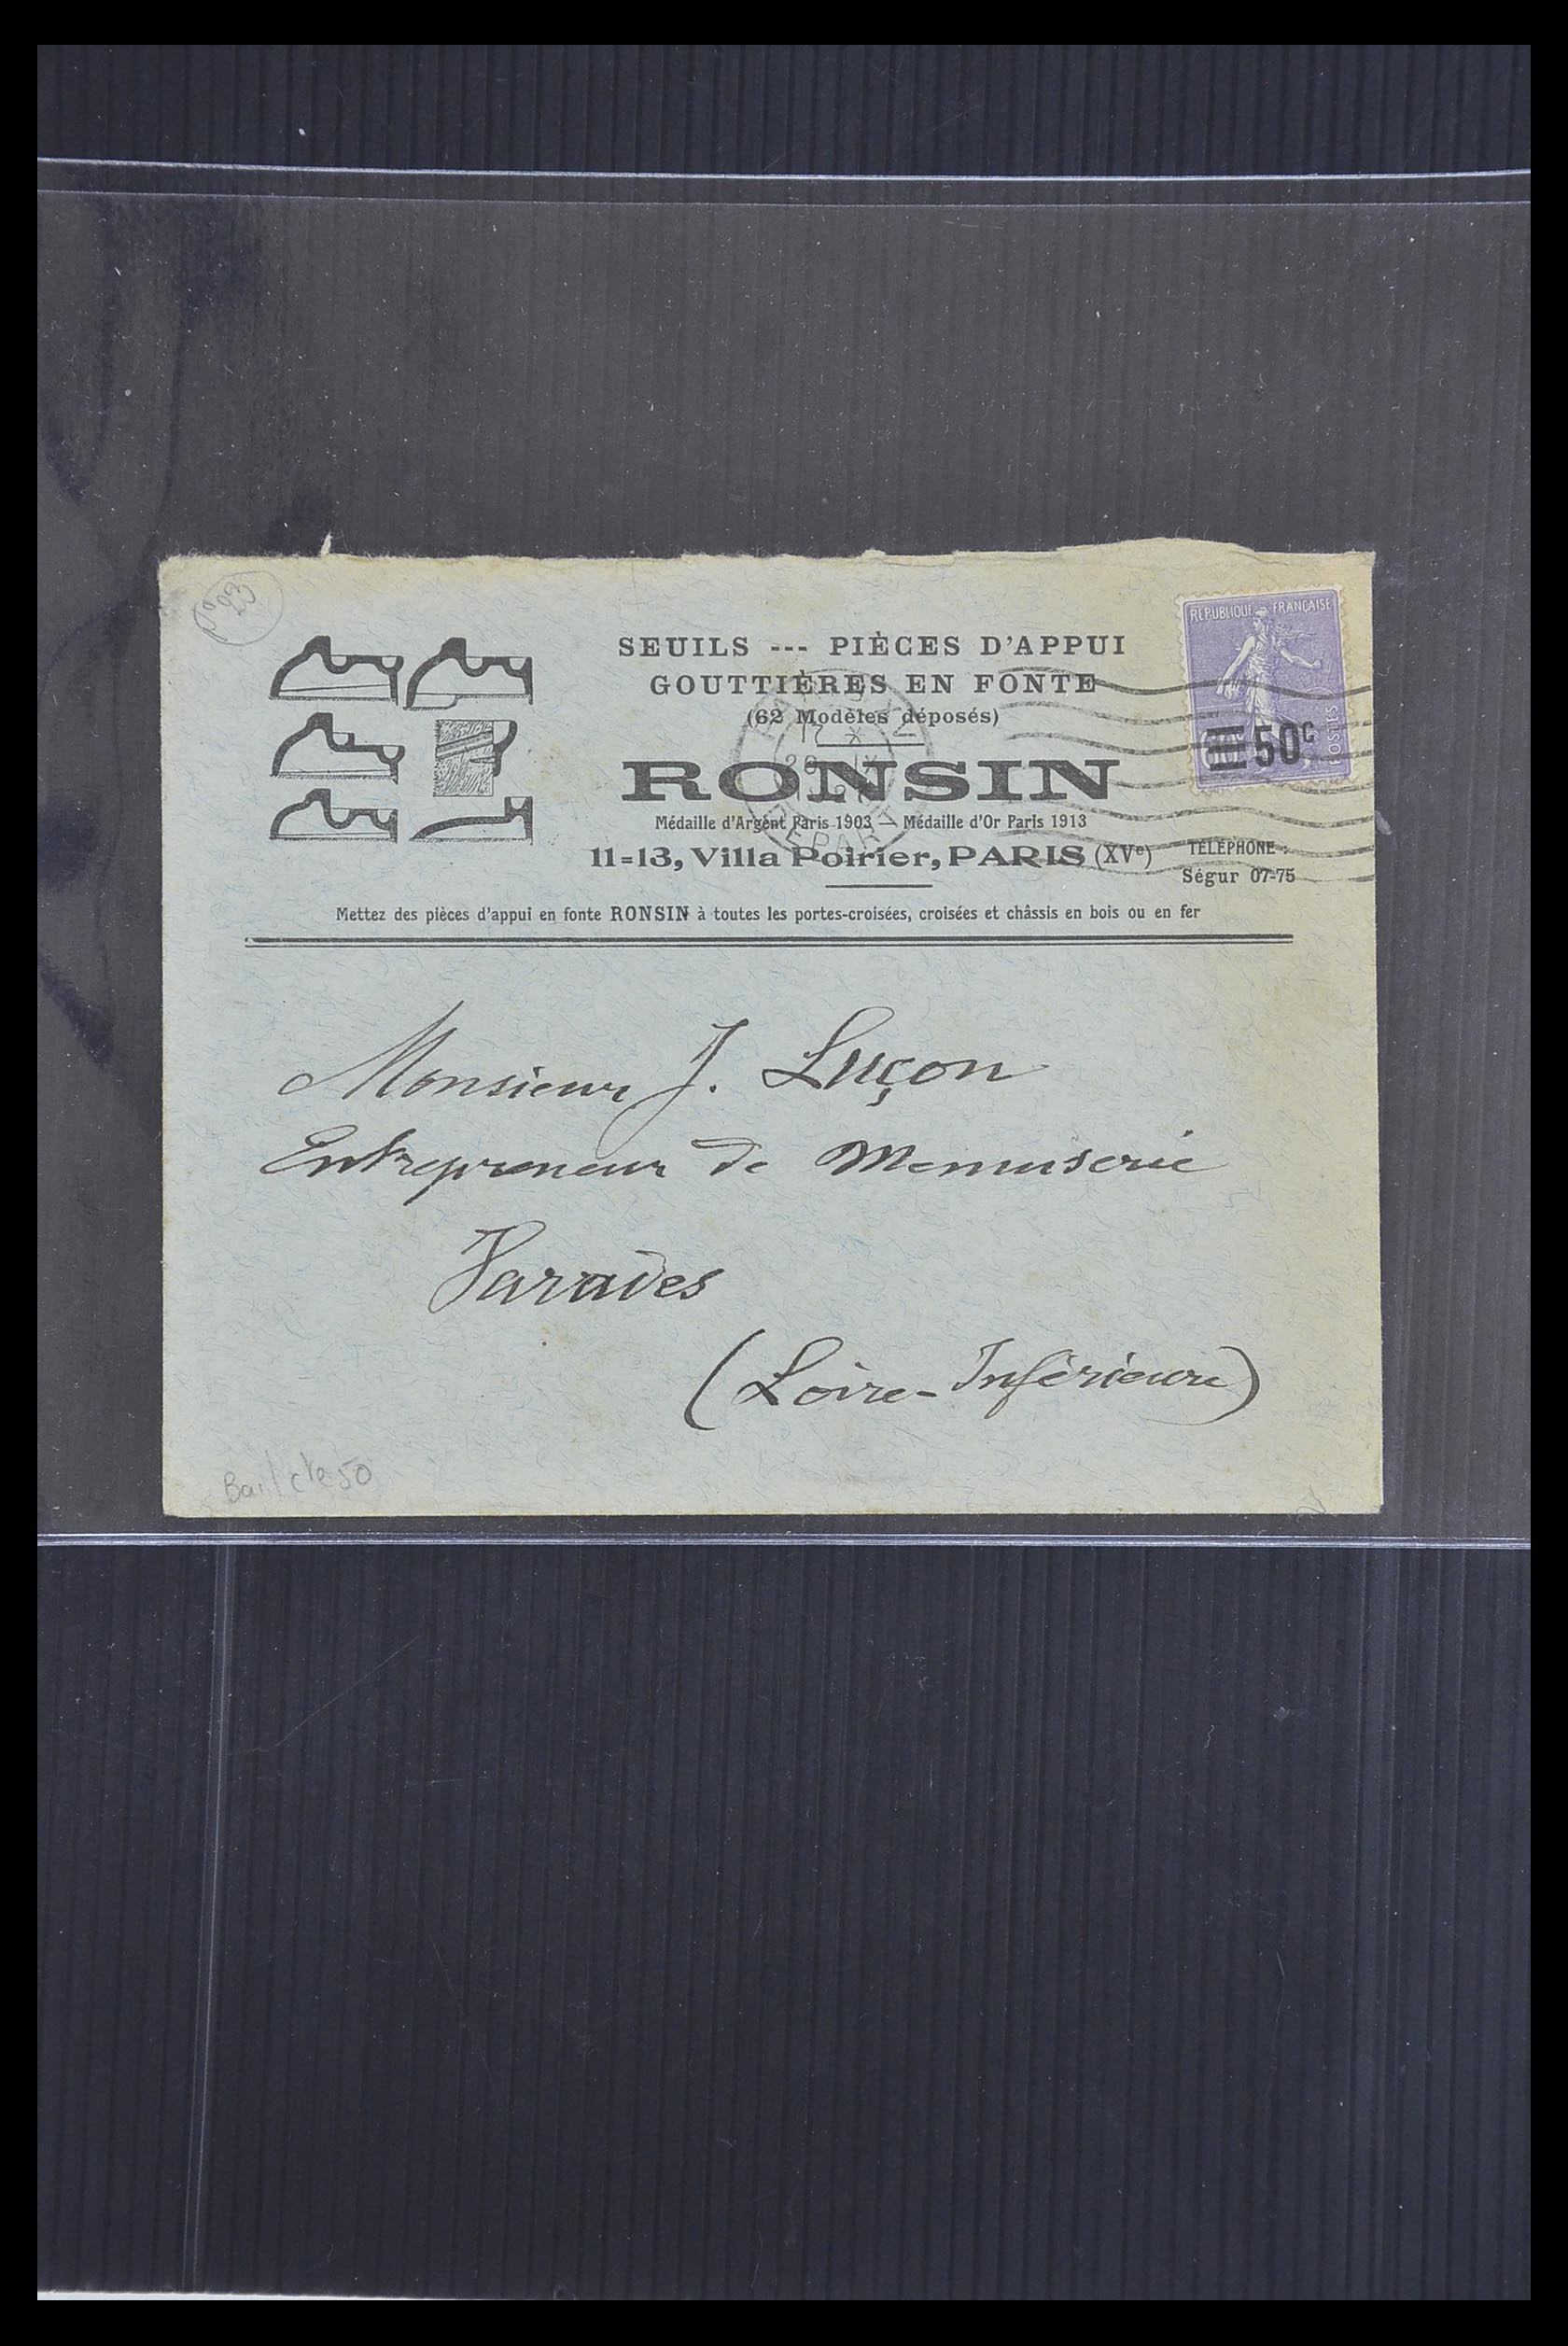 P° 23
SEUILS --- PIÈCES D'APPUI
GOUTTIÈRES EN FONTE
(62 Modèles déposés)
RONSIN
Médaille d'Argent Paris 1903 — Médaille d'Or Paris 1913
11=13, Villa Poirier, PARIS (XVe)
TÉLÉPHONE :
Ségur 07-75
Mettez des pièces d'appui en fonte RONSIN à toutes les portes-croisées, croisées et châssis en bois ou en fer
REPUBLIQUE FRANÇAISE
POSTES
50c
Monsieur J. Luçon
Entrepreneur de Menuiserie
Varades
(Loire-Inférieure)
50